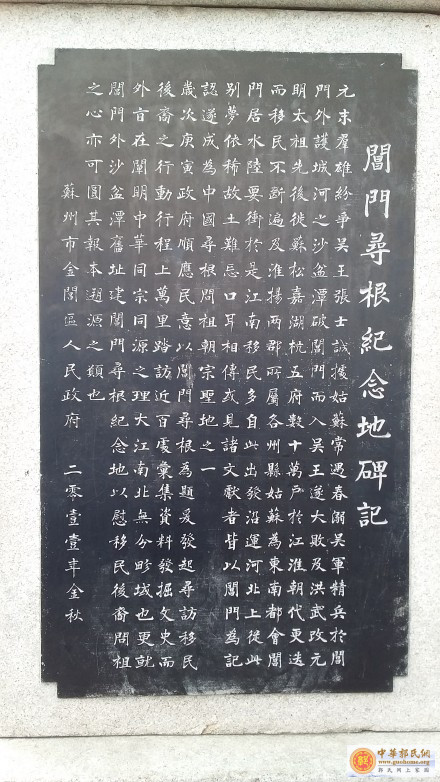 閶門尋根紀念地碑記
元末羣雄紛爭吴王張士誠據姑蘇常遇春溺吴軍精兵於閶
門外護城河之沙盆潭破閶門而入吴王遂大敗及洪武改元
明太祖先後徙蘇松嘉湖杭五府數十萬戶於江淮朝代更迭
而移民不斷遍及淮揚兩郡所屬各州縣姑蘇為東南都會閶
門居水陸要衝於是江南移民多自此出發沿運河北上從此
别夢依稀故土難忘口耳相傳或見諸文獻者皆以閶門為記
認遂成為中國尋根問祖朝宗聖地之一
歲次庚寅政府順應民意以閶門尋根為題爰發起尋訪移民
後裔之行動行程上萬里踏訪近百處彙集資料發掘文史而
外旨在闡明中華同宗同源之理大江南北無分畛域也更就
閶門外沙盆潭舊址建閶門尋根紀念地以慰移民後裔問祖
之心亦可圓其報本溯源之願也
蘇州市金閶區人民政府 二零壹壹年金秋
中華郭氏網
www.guohome.org
郭氏網上家園